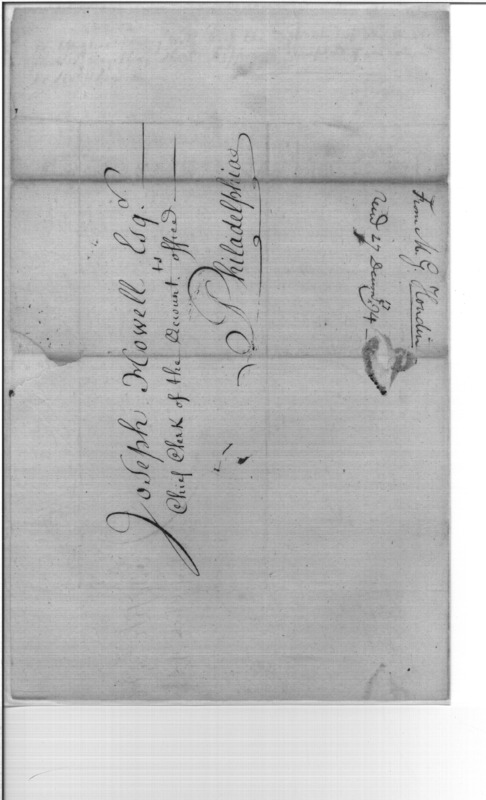 Joseph Howell Esqr.
Chief Clerk of the Accountts office
Philadelphia
From Mr. G. 
Recd 27 Decemr 94